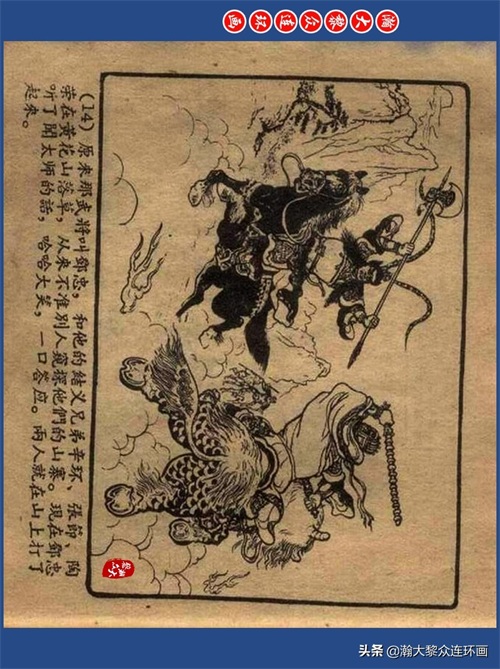 瀚大黎众连环画
(14) 原来那武將叫鄧忠，和他的結义兄弟辛环、張節、陶
荣在黄花山落草，从来不准別人窺探他們的山寨。現在鄧忠
听了聞太师的話，哈哈大笑，一口答应。兩人就在山上打了
起来。
头条 @瀚大黎众连环画